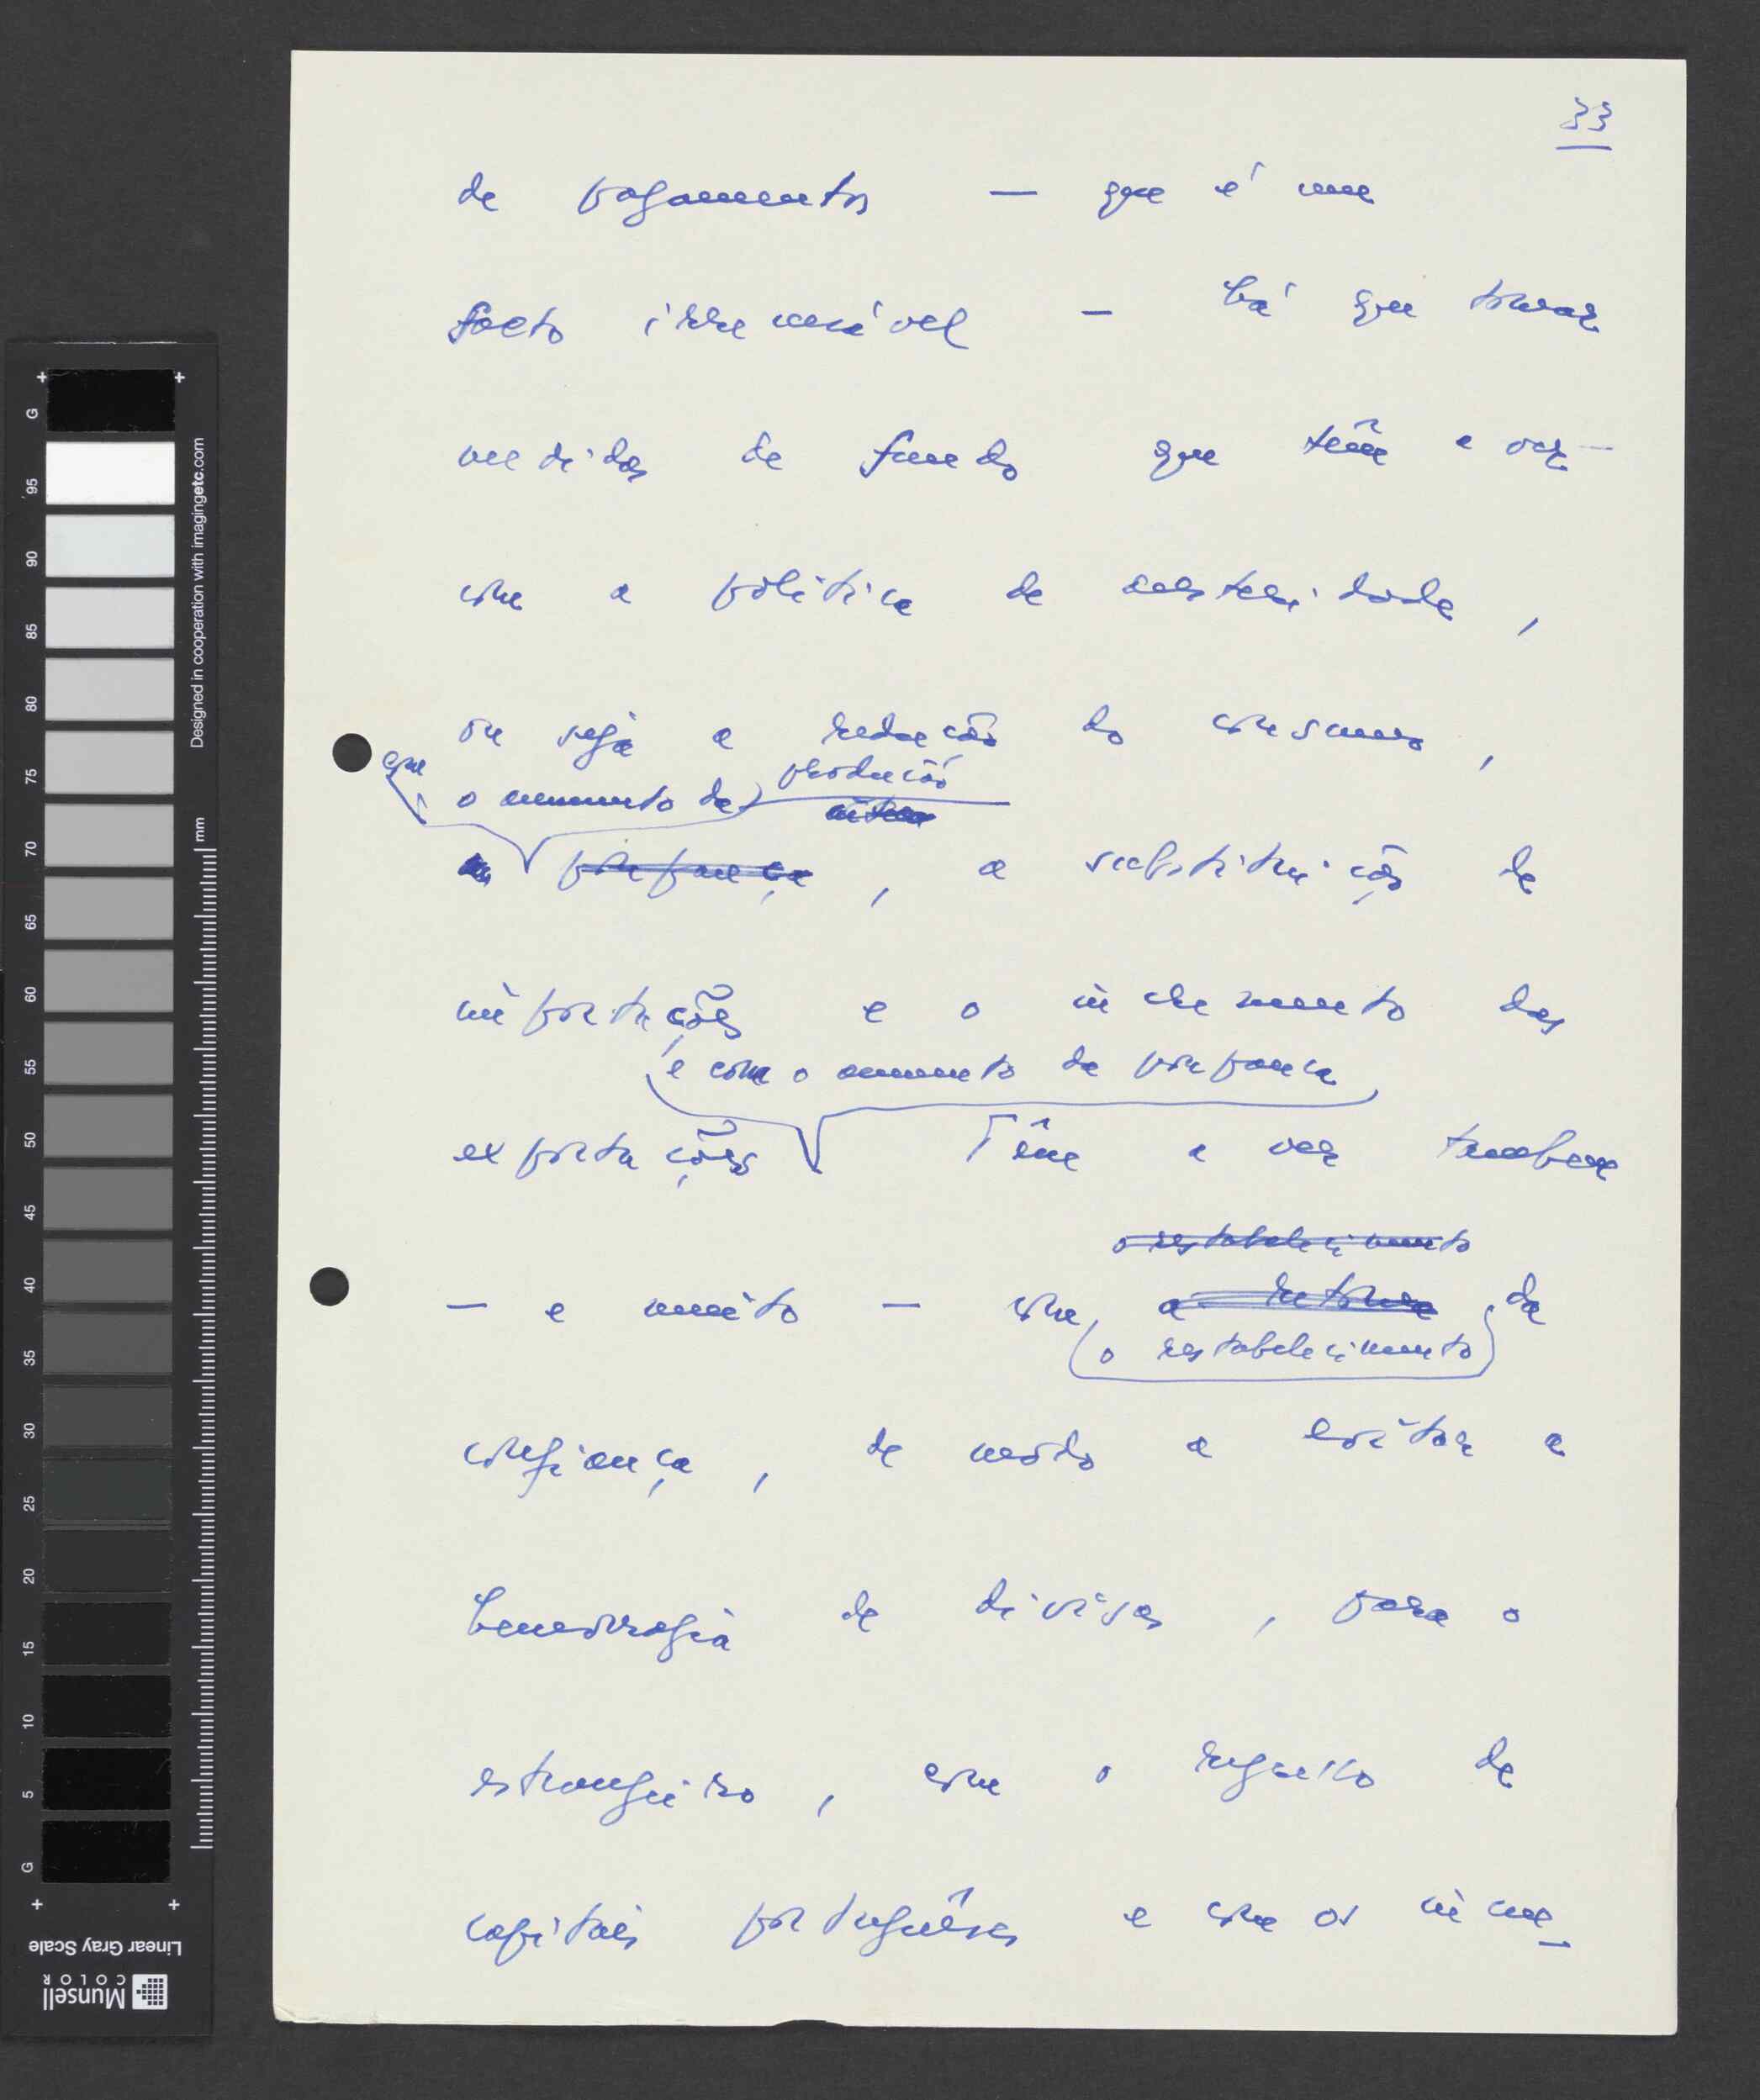 33
de pagamentos — que é um
facto irremovível — há que tomar
medidas de fundo que têm a ver
com a política de austeridade,
ou seja a redução do consumo,
que
o aumento da produção
poupança, a substituição de
importações e o incremento das
e com o aumento da poupança
exportações Têm a ver também
o restabelecimento
— e muito — com a retoma da
o restabelecimento
confiança, de modo a evitar a
hemorragia de divisas, para o
estrangeiro, com o regresso de
capitais portugueses e com os
G
95
90
85
80
75
70
65
60
55
50
45
40
35
30
25
20
15
10
5
G
mm
Designed in cooperation with imagingetc.com
Linear Gray Scale
Munsell
COLOR